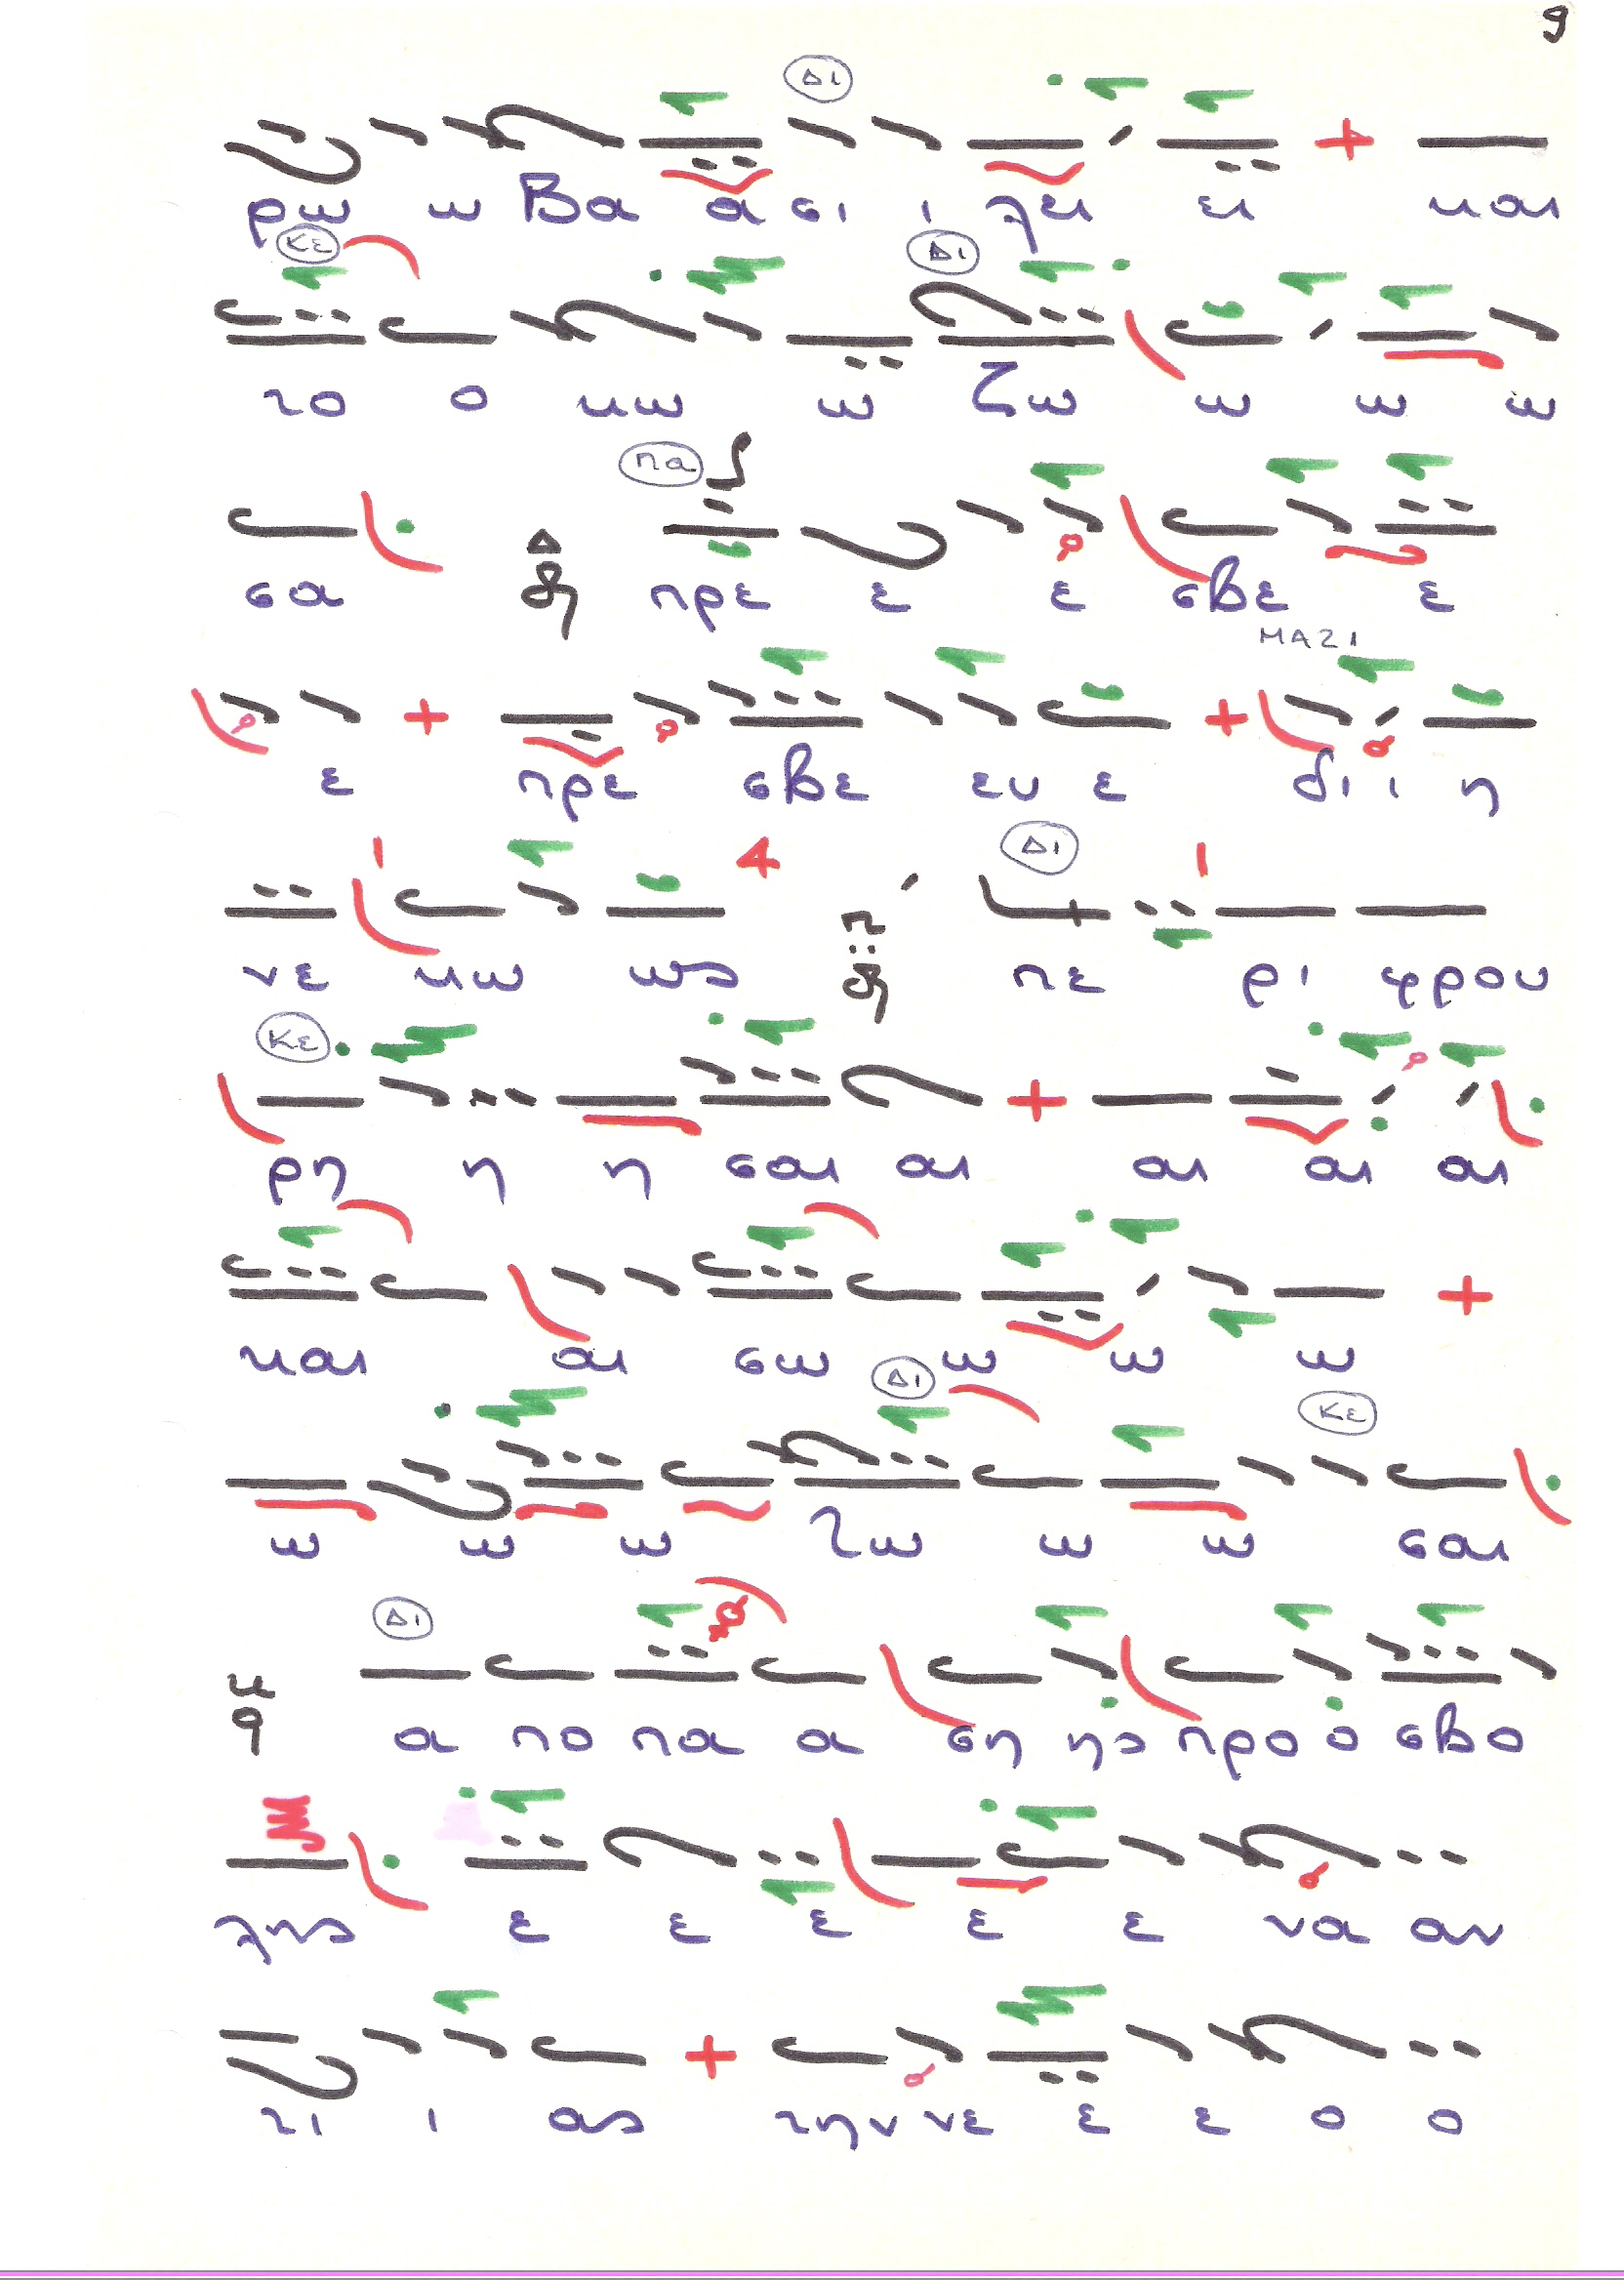 9
Δι
ρω ω Βα α σι ι λει ει και
Κε Δι
το ο κω ω ζω ω ω ω
πα
σα Δ πρε ε ε σβε ε
ΜΑΖΙ
ε πρε σβε ευ ε δι ι η
Δι
νε κω ως π πε ρι φρου
Κε
ρη η η σαι αι αι αι αι
και αι σω ω ω ω
Δι Κε
ω ω ω ζω ω ω σαι
Δι
κ q α πο πα α ση ης προ ο σβο
λης ε ε ε ε ε να αν
τι ι ας την νε ε ε ο ο